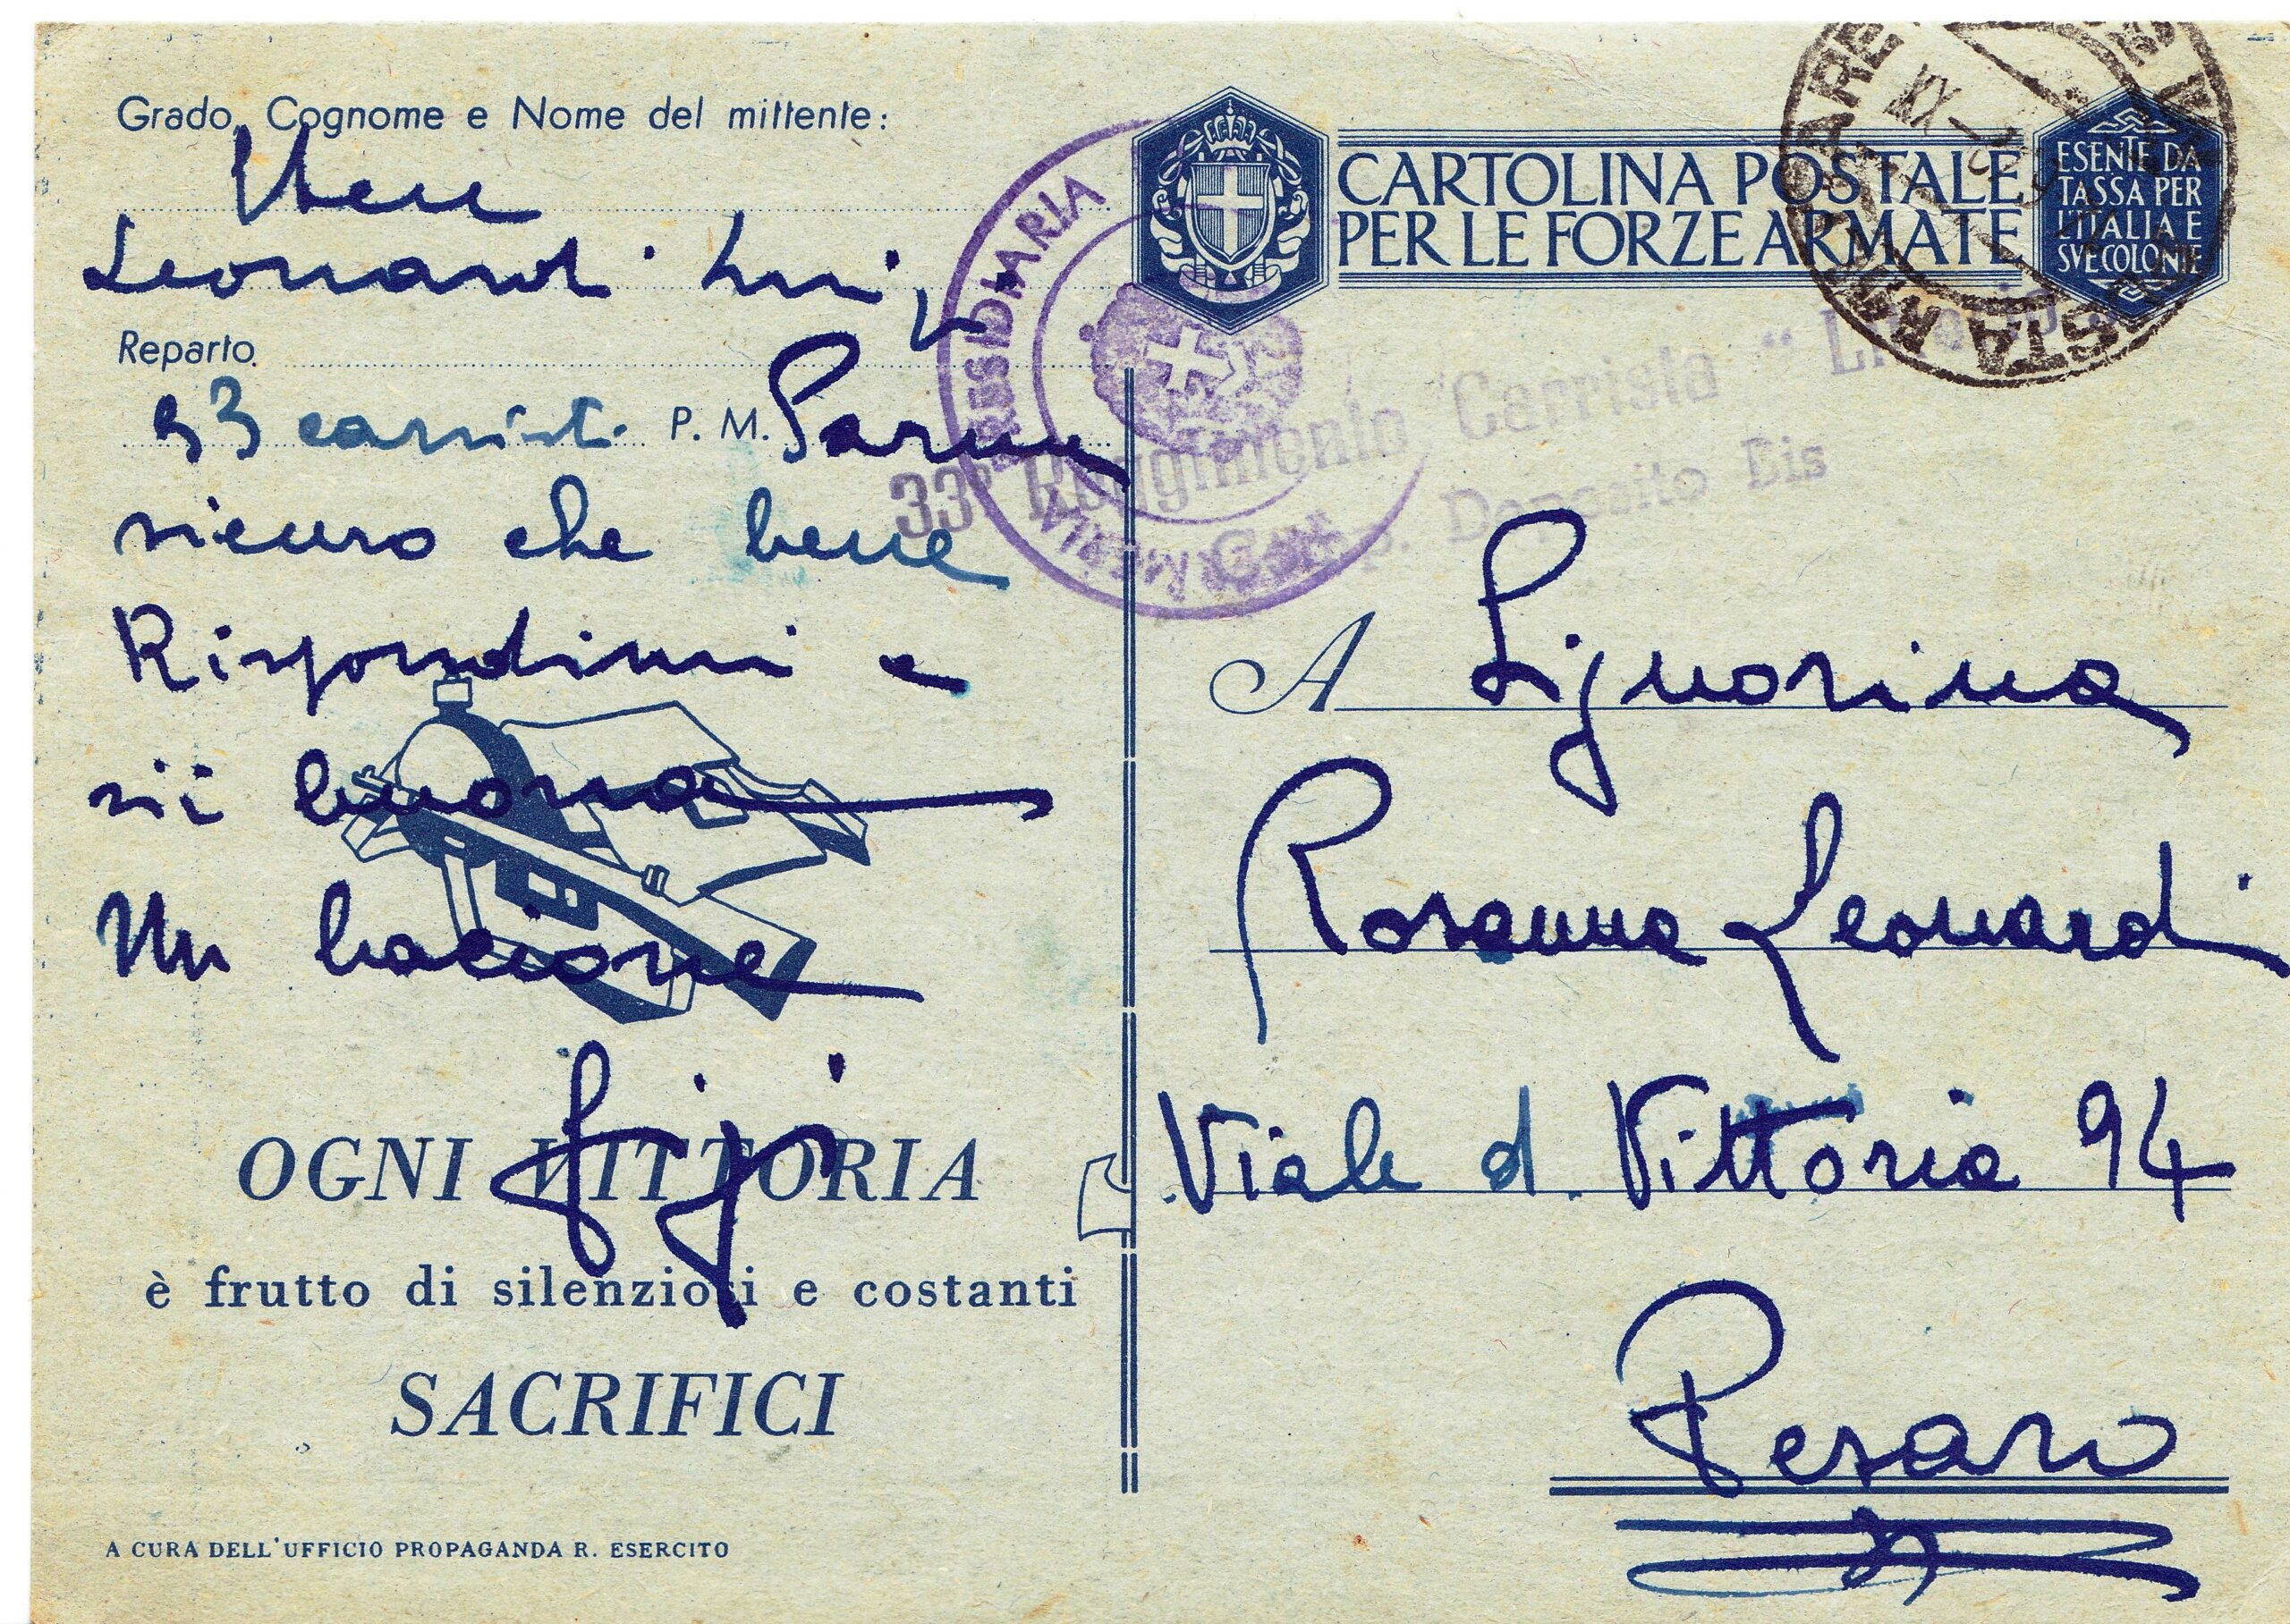 Grado, Cognome e Nome del mittente:
Leonardi Luigi
Reparto
33 carristi P. M. Parma
sicuro che bene
Rispondimi e
sii buona
Un bacione
Gigi
OGNI VITTORIA
è frutto di silenziosi e costanti
SACRIFICI
A CURA DELL'UFFICIO PROPAGANDA R. ESERCITO
CARTOLINA POSTALE
PER LE FORZE ARMATE
ESENTE DA
TASSA PER
L'ITALIA E
SVE COLONIE
PRESIDIARIA
33° Reggimento Carrista "
Deposito
POSTA
XX
A Signorina
Rosanna Leonardi
Viale d. Vittoria 94
Pesaro